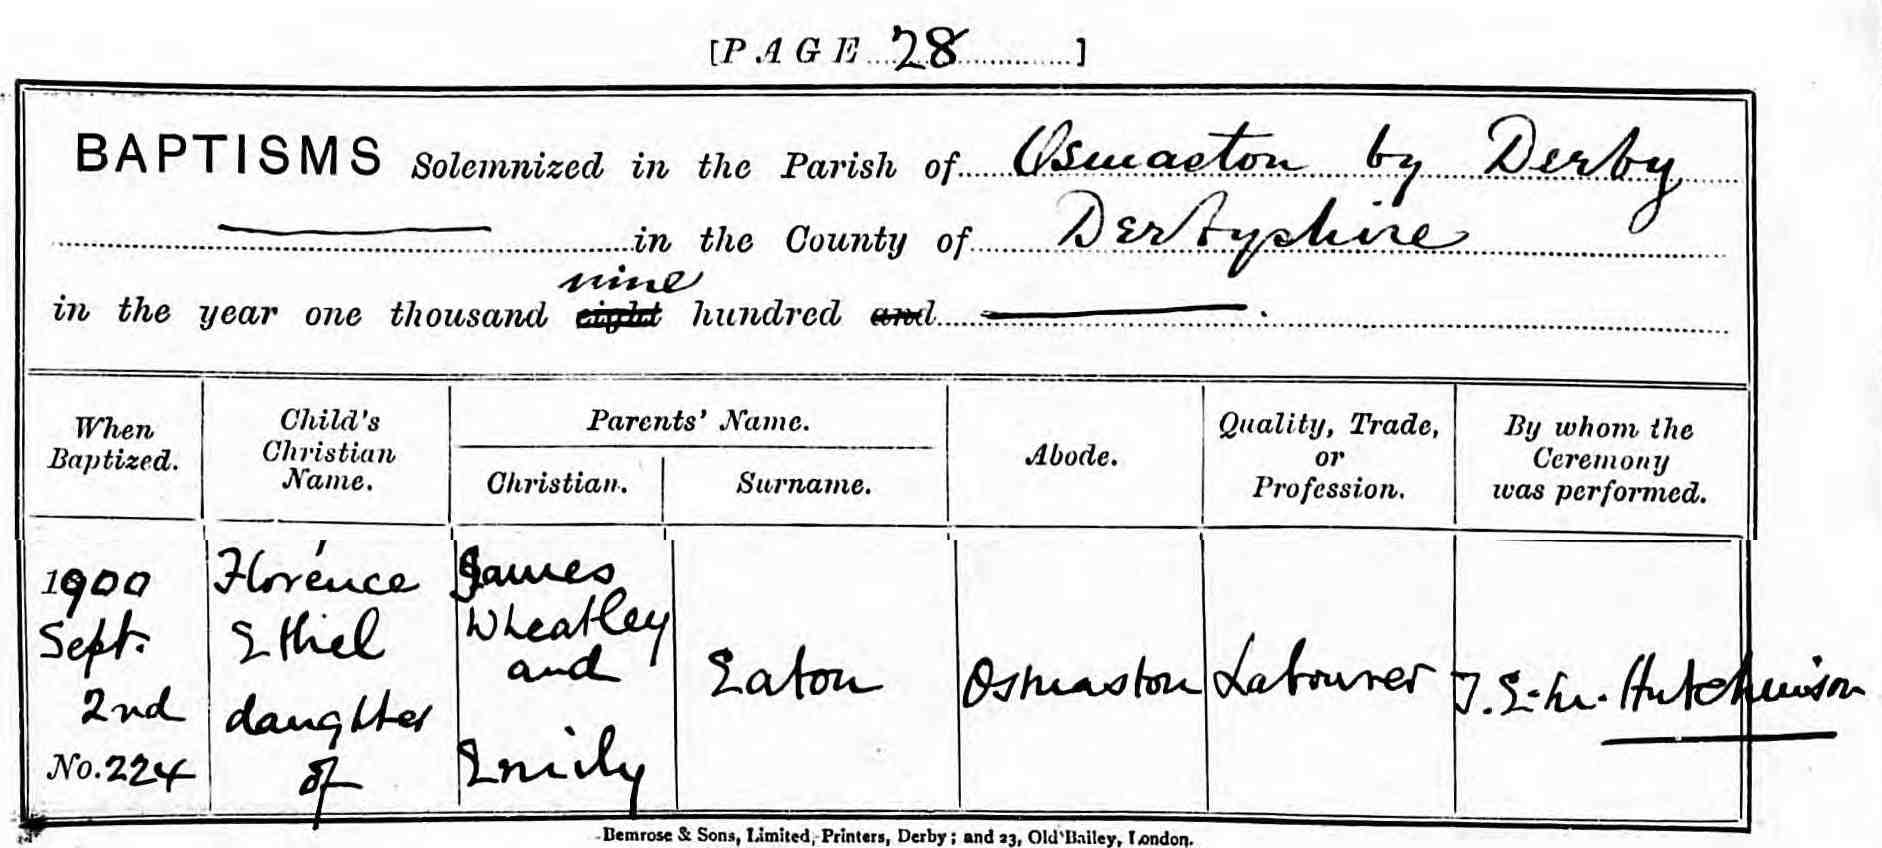 [PAGE 28]
BAPTISMS Solemnized in the Parish of Osmaston by Derby
in the County of Derbyshire
nine
in the year one thousand eight hundred and
When Baptized.
Child's Christian Name.
Parents' Name.
Christian.
Surname.
Abode.
Quality, Trade, or Profession.
By whom the Ceremony was performed.
1900
Sept.
2nd
No. 224
Florence
Ethel
daughter
of
James
Wheatley
and
Emily
Eaton
Osmaston
Labourer
Hutchinson
Bemrose & Sons, Limited, Printers, Derby; and 23, Old Bailey, London.